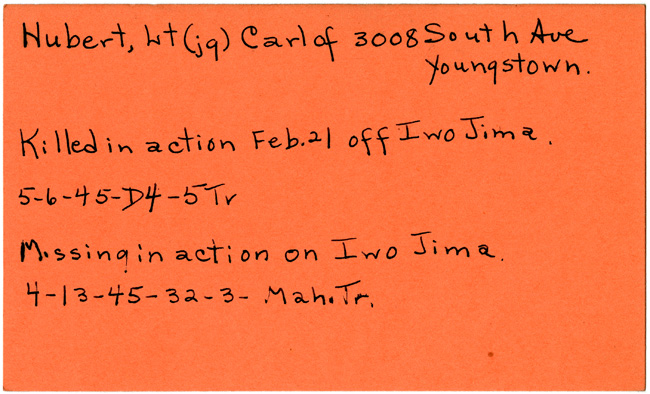 Hubert, Lt (jg) Carl of 3008 South Ave
Youngstown.
Killed in action Feb. 21 off Iwo Jima.
5-6-45-D4-5 Tr
Missing in action on Iwo Jima.
4-13-45-32-3- Mah. Tr.